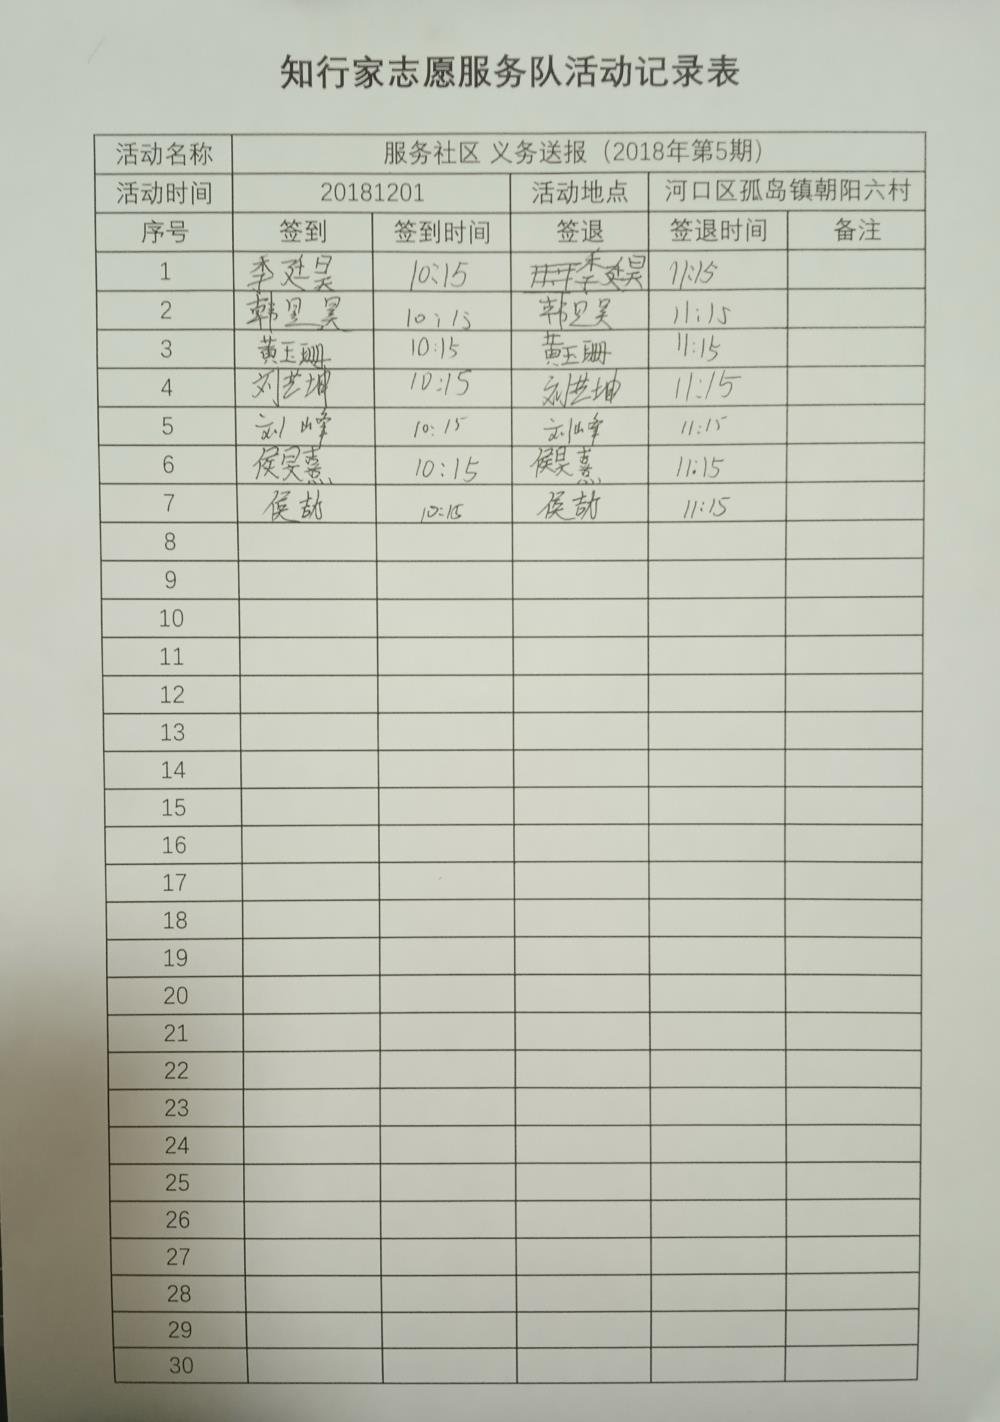 知行家志愿服务队活动记录表
活动名称 服务社区 义务送报（2018年第5期）
活动时间 20181201 活动地点 河口区孤岛镇朝阳六村
序号 签到 签到时间 签退 签退时间 备注
1 李延昊 10:15 李延昊 11:15
2 韩昱昊 10:15 韩昱昊 11:15
3 黄玉珊 10:15 黄玉珊 11:15
4 刘芸坤 10:15 刘芸坤 11:15
5 刘峰 10:15 刘峰 11:15
6 侯昊熹 10:15 侯昊熹 11:15
7 侯喆 10:15 侯喆 11:15
8
9
10
11
12
13
14
15
16
17
18
19
20
21
22
23
24
25
26
27
28
29
30